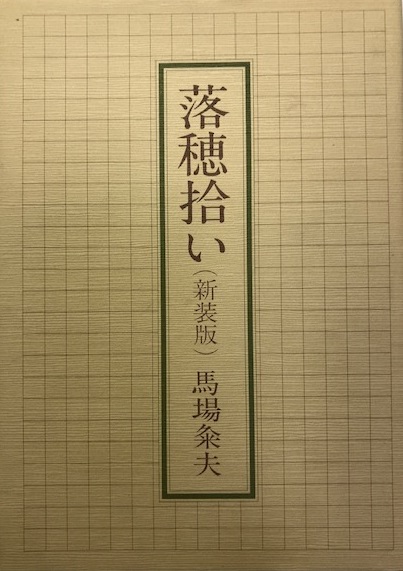 落穂拾い（新装版）馬場粂夫